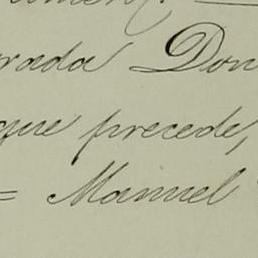 rada Don
que precede,
= Manuel